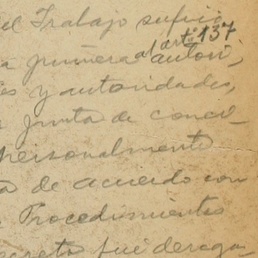 el Trabajo sufrió
al artº 137
a primera autori,
es y autoridades,
a junta de conci-
personalmente
ta de acuerdo con
Procedimientos
ecreto fué deroga-